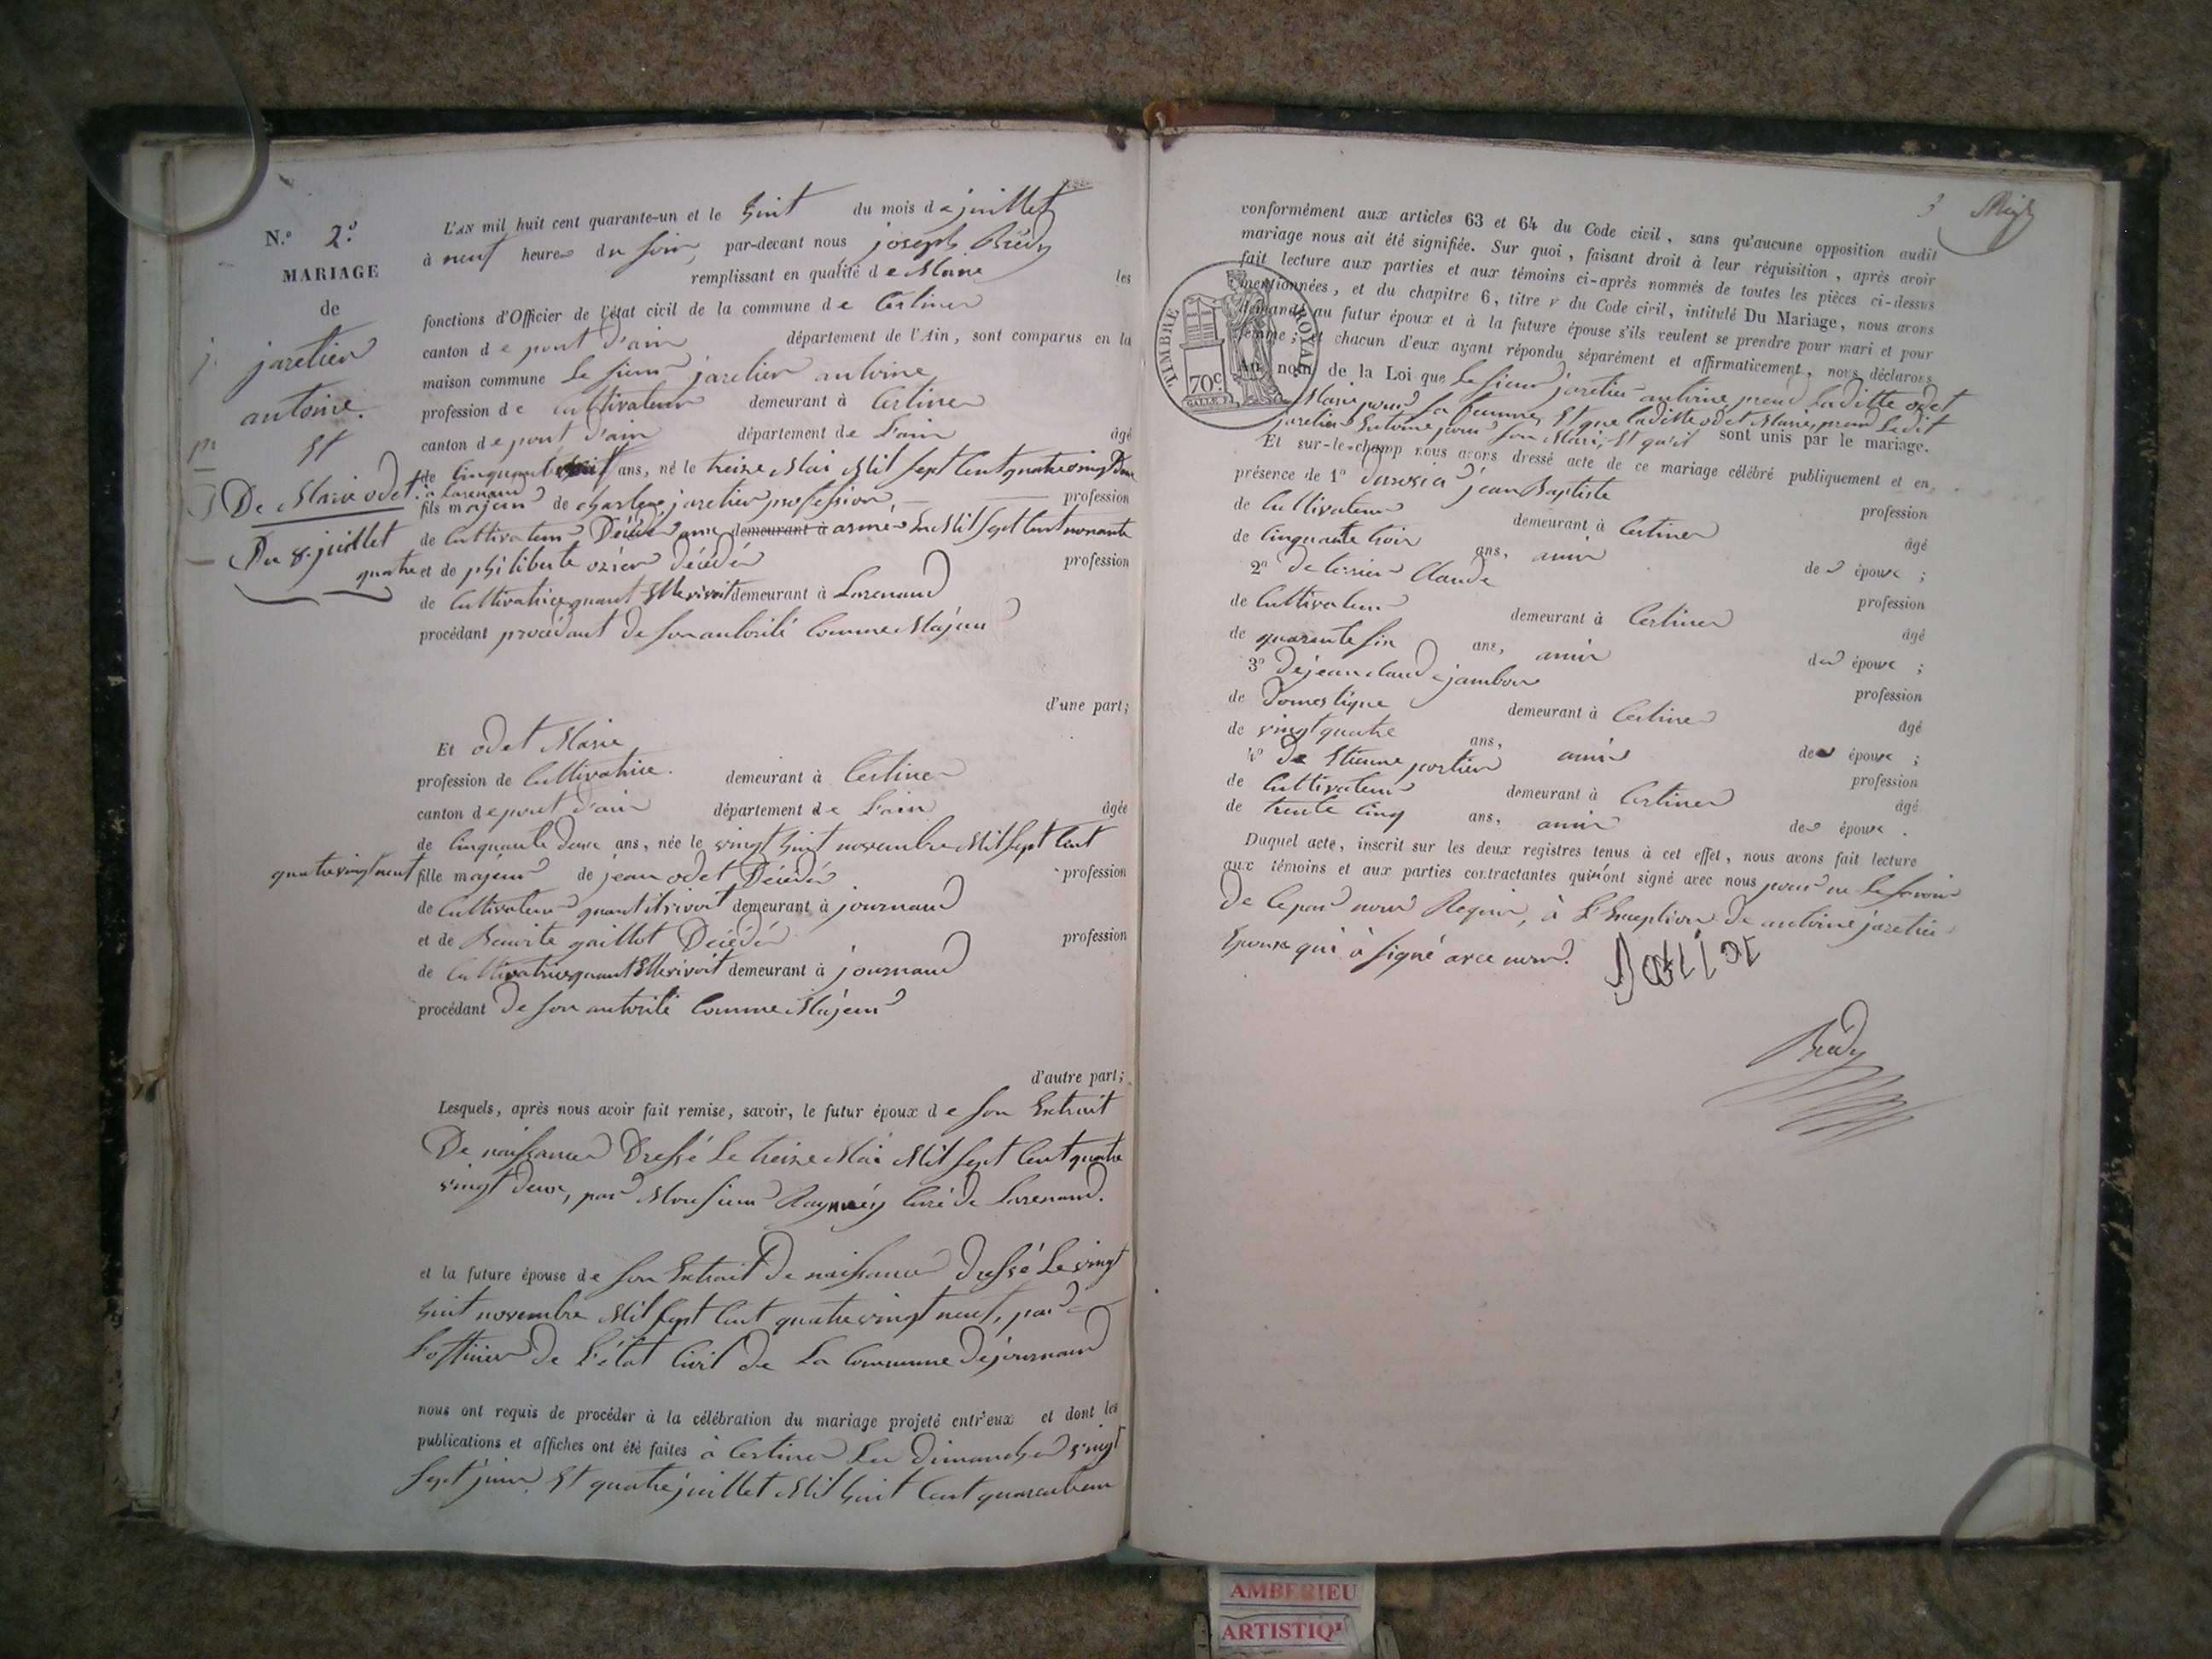 N.º 2.º
MARIAGE
de
jaretier
antoine.
Et
De Marie odet.
Du 8. juillet
L'AN mil huit cent quarante-un et le huit du mois de juillet
à neuf heures du soir, par-devant nous joseph Brédy
remplissant en qualité de Maire les
fonctions d'Officier de l'état civil de la commune de Certines
canton de pont d'ain département de l'Ain, sont comparus en la
maison commune Le sieur jaretier antoine
profession de Cultivateur demeurant à Certines
canton de pont d'ain département de L'ain âgé
de Cinquante ans, né le treize Mai Mil sept Cent quatrevingt Deux
à Larenaud
fils majeur de charles jaretier profession profession
de Cultivateur Décédé demeurant à armée En Mil sept Cent nonante
quatre et de philiberte ozier décédée profession
de Cultivatrice quant Elle vivoit demeurant à Larenaud
procédant procédant de son autorité Comme Majeur
d'une part;
Et odet Marie
profession de Cultivatrice. demeurant à Certines
canton de pont d'ain département de L'ain âgée
de Cinquante deux ans, née le vingt huit novembre Mil sept Cent
quatrevingt neuf fille majeur de jean odet Décédé profession
de Cultivateur quant il vivoit demeurant à journaud
et de Benoite gaillot Décédée profession
de Cultivatrice quant Elle vivoit demeurant à journaud
procédant de son autorité Comme Majeur
d'autre part;
Lesquels, après nous avoir fait remise, savoir, le futur époux de son Extrait
De naissance Dressé Le treize Mai Mil sept Cent quatre
vingt deux, par Monsieur Curé de Larenaud.
et la future épouse de son Extrait De naissance dressé Le vingt
huit novembre Mil sept Cent quatrevingt neuf, par
L'officier de L'état Civil de La Commune de journaud
nous ont requis de procéder à la célébration du mariage projeté entr'eux et dont les
publications et affiches ont été faites à Certines Les Dimanches vingt
sept juin Et quatre juillet Mil huit Cent quarante un
3
conformément aux articles 63 et 64 du Code civil, sans qu'aucune opposition audit
mariage nous ait été signifiée. Sur quoi, faisant droit à leur réquisition, après avoir
fait lecture aux parties et aux témoins ci-après nommés de toutes les pièces ci-dessus
mentionnées, et du chapitre 6, titre v du Code civil, intitulé Du Mariage, nous avons
demandé au futur époux et à la future épouse s'ils veulent se prendre pour mari et pour
femme; et chacun d'eux ayant répondu séparément et affirmativement, nous déclarons
Au nom de la Loi que Le sieur jaretier antoine prend Laditte odet
Marie pour sa femme, Et que laditte odet Marie, prend Ledit
jaretier Antoine pour son Mari, Et qu'il sont unis par le mariage.
TIMBRE ROYAL
70c
Et sur-le-champ nous avons dressé acte de ce mariage célébré publiquement et en
présence de 1º jean Baptiste profession
de Cultivateur demeurant à Certines âgé
de Cinquante trois ans, amis des épouse;
2º Claude profession
de Cultivateur demeurant à Certines âgé
de quarante six ans, amis des épouse;
3º De jean claude jambon profession
de Domestique demeurant à Certines âgé
de vingt quatre ans, amis des épouse;
4º de Etienne portier profession
de Cultivateur demeurant à Certines âgé
de trente Cinq ans, amis des épouse.
Duquel acte, inscrit sur les deux registres tenus à cet effet, nous avons fait lecture
aux témoins et aux parties contractantes qui n'ont signé avec nous pour ne Le savoir
De Ce par nous Requis, à L'Exception De antoine jaretier
Epoux qui à signé avec nous.
Brédy
AMBERIEU
ARTISTIQ